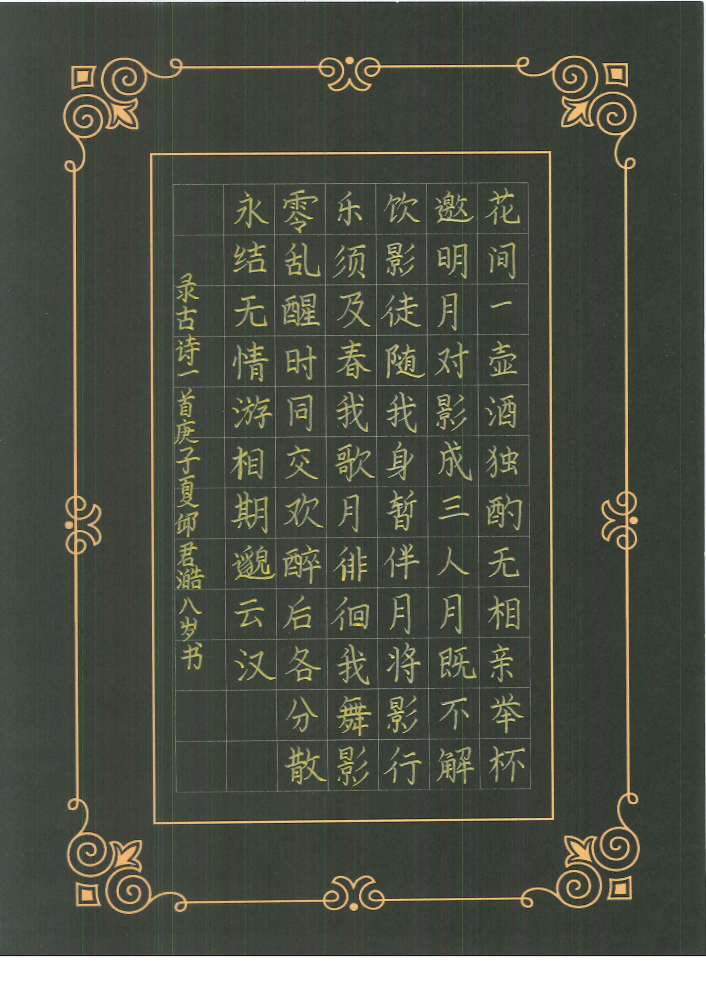 花间一壶酒独酌无相亲举杯
邀明月对影成三人月既不解
饮影徒随我身暂伴月将影行
乐须及春我歌月徘徊我舞影
零乱醒时同交欢醉后各分散
永结无情游相期邈云汉
录古诗一首庚子夏邱君澔八岁书